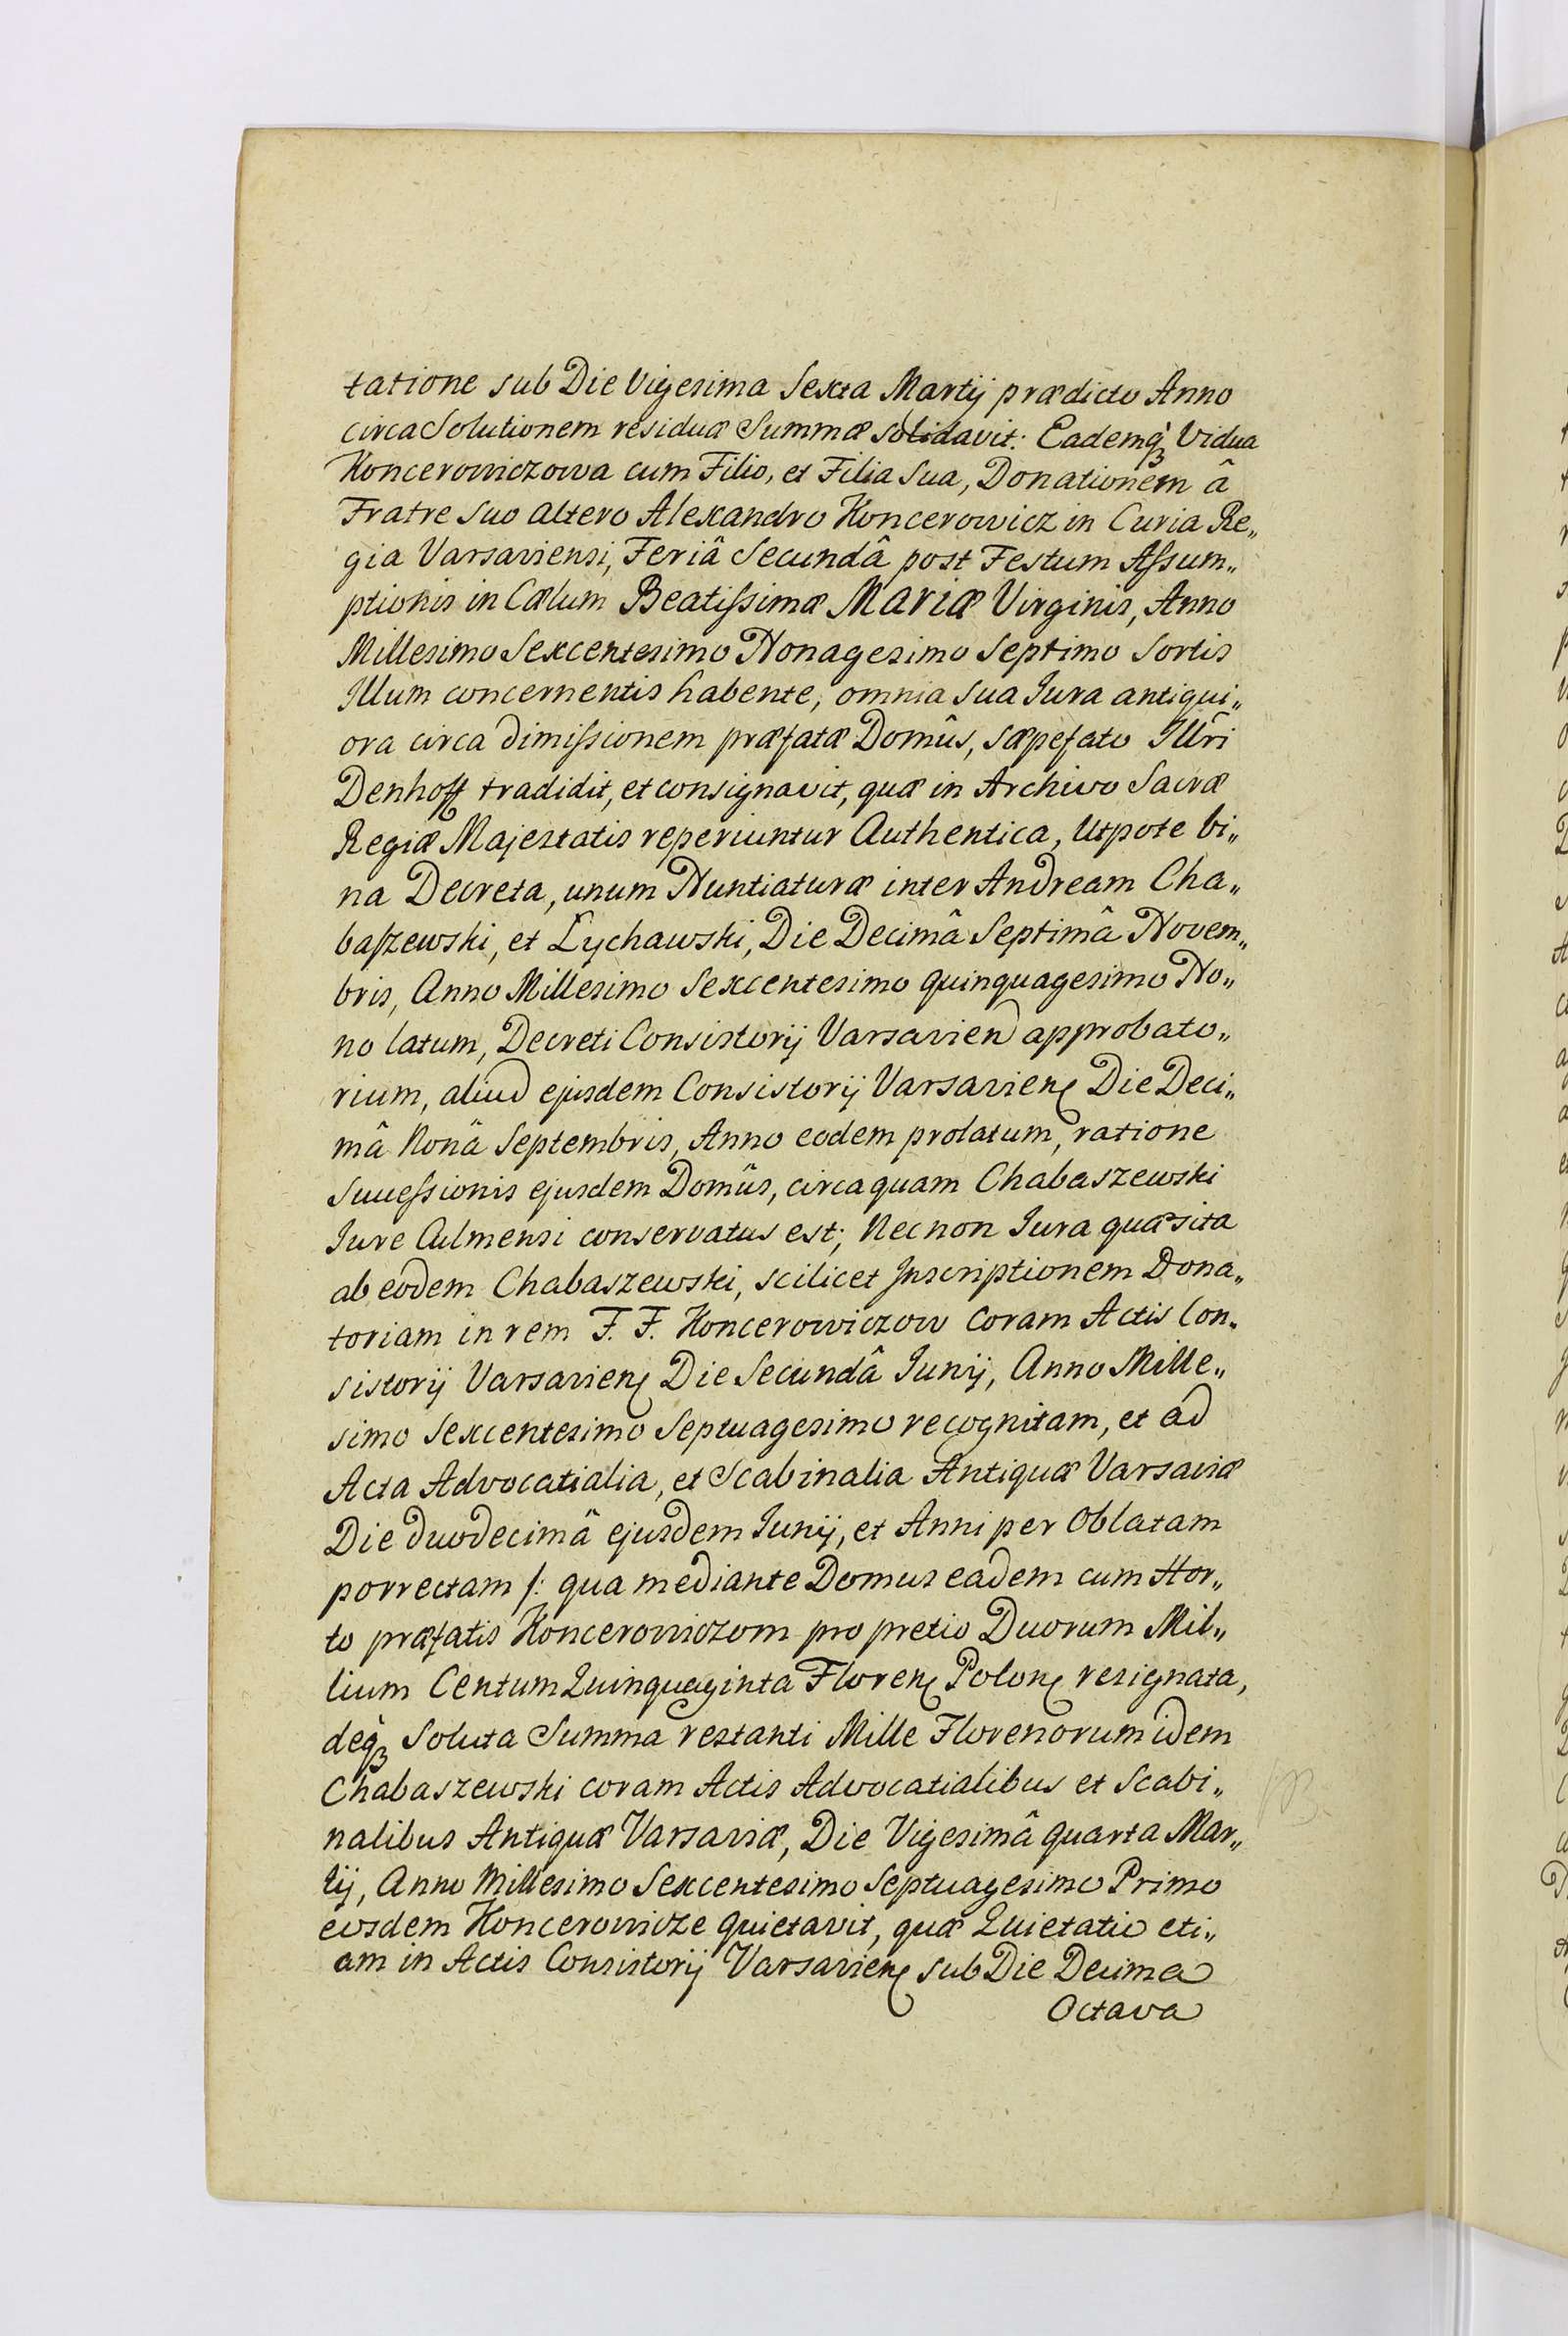 tatione sub Die Vigesima Sexta Martij prædicto Anno
circa Solutionem residuæ Summæ solidavit: Eademq́ꝫ Vidua
Koncerowiczowa cum Filio, et Filia Sua, Donationem â
Fratre Suo altero Alexandro Koncerowicz in Curia Re„
gia Varsaviensi, Feriâ Secundâ post Festum Aſsum„
ptionis in Cælum Beatiſsimæ MARIÆ Virginis, Anno
Millesimo Sexcentesimo Nonagesimo Septimo Sortis
Illum concernentis habente, omnia sua Jura antiqui„
ora circa dimiſsionem præfatæ Domûs, sæpefato Illr̃i
Denhoff tradidit, et consignavit, quæ in Archivo Sacræ
Regiæ Majestatis reperiuntur Authentica, Utpote bi„
na Decreta, unum Nuntiaturæ inter Andream Cha„
baſzewski, et Lychawski, Die Decimâ Septimâ Novem„
bris, Anno Millesimo Sexcentesimo quinquagesimo No„
no latum, Decreti Consistorij Varsavien approbato„
rium, aliud ejusdem Consistorij Varsavien Die Deci„
mâ Nonâ Septembris, Anno eodem prolatum, ratione
Succeſsionis ejusdem Domûs, circa quam Chabaszewski
Jure Culmensi conservatus est; Nec non Jura quæsita
ab eodem Chabaszewski, scilicet Inscriptionem Dona„
toriam in rem F. F. Koncerowiczow Coram Actis Con„
sistorij Varsavien Die Secundâ Junij, Anno Mille„
simo Sexcentesimo Septuagesimo recognitam, et ad
Acta Advocatialia, et Scabinalia Antiquæ Varsaviæ
Die duodecimâ ejusdem Junij, et Anni per Oblatam
porrectam /: qua mediante Domus eadem cum Hor„
to præfatis Koncerowiczom pro pretio Duorum Mil„
lium Centum Quinquaginta Floren Polon resignata,
deq́ꝫ Soluta Summa restanti Mille Florenorum idem
Chabaszewski coram Actis Advocatialibus et Scabi„
nalibus Antiquæ Varsaviæ, Die Vigesimâ quarta Mar„
tij, Anno Millesimo Sexcentesimo Septuagesimo Primo
eosdem Koncerowicze quietavit, quæ Quietatio eti„
am in Actis Consistorij Varsavien sub Die Decima
Octava